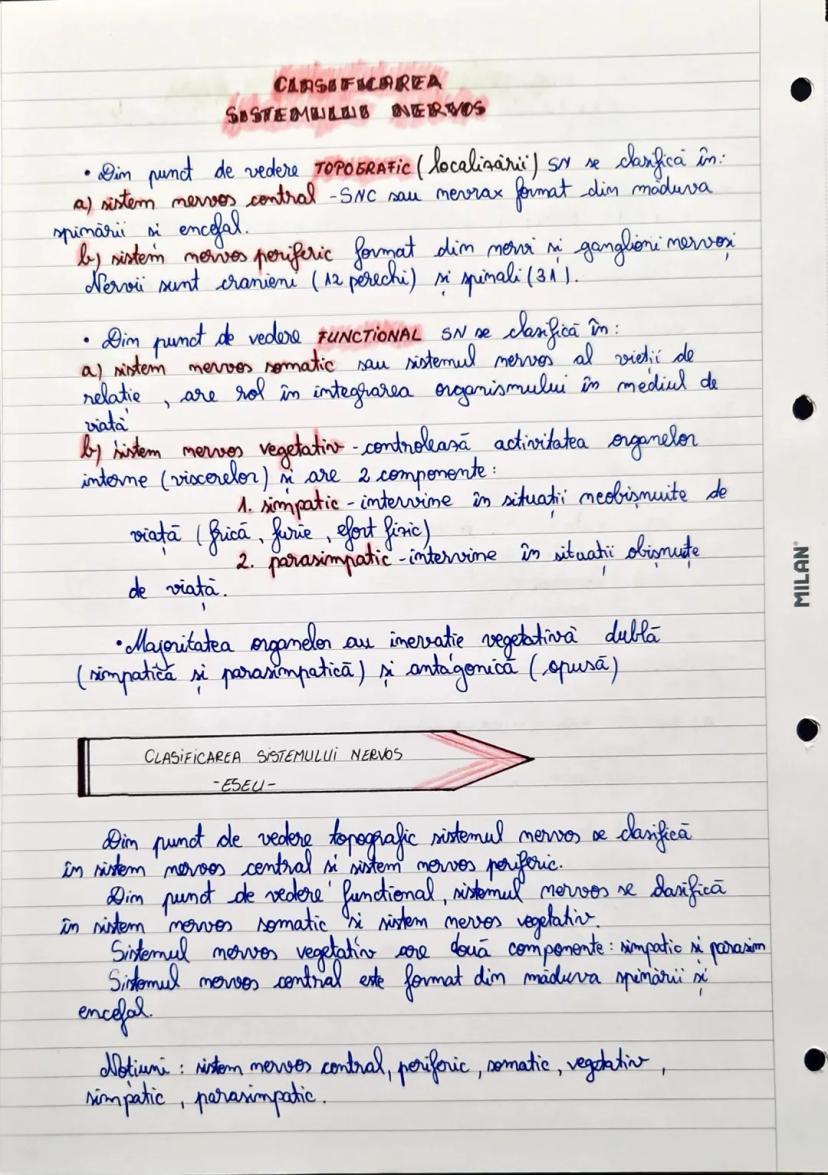 CLASIFICAREA
SISTEMULUI NERVOS
• Din punct de vedere TOPOGRAFIC (localizării) SN se clasifică în:
a) sistem nervos central - SNC sau nevrax format din măduva
spinării si encefal.
b) sistem nervos periferic format din nervi și ganglioni nervoși
Nervii sunt cranieni (12 perechi) și spinali (31).
• Din punct de vedere FUNCTIONAL SN se clasifică în:
a) sistem nervos somatic sau sistemul nervos al vieții de
relatie, are rol în integrarea organismului în mediul de
viată
b) sistem nervos vegetativ - controlează activitatea organelor
interne (viscerelor) și are 2 componente:
1. simpatic - intervine în situații neobișnuite de
viață (frică, furie, efort fizic)
2. parasimpatic - intervine în situații obișnuite
de viață.
• Majoritatea organelor au inervatie vegetativă dublă
(simpatică și parasimpatică) și antagonică (opusă)
CLASIFICAREA SISTEMULUI NERVOS
-ESEU-
Din punct de vedere topografic sistemul nervos se clasifică
în sistem nervos central si sistem nervos periferic.
Din punct de vedere functional, sistemul nervos se clasifică
în sistem nervos somatic si sistem nervos vegetativ.
Sistemul nervos vegetativ are două componente: simpatic si parasim
Sistemul nervos central este format din măduva spinării și
encefal.
Notiuni: sistem nervos central, periferic, somatic, vegetativ,
simpatic, parasimpatic.
MILAN